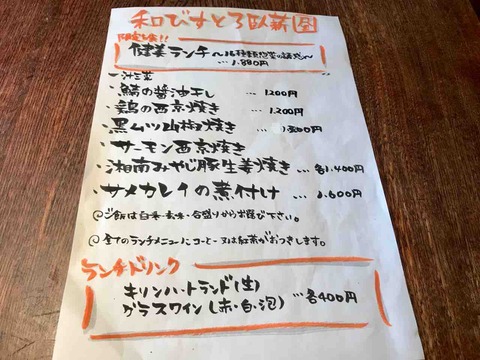 和びすとろ臥薪圀
限定5食!!
健美ランチ〜16種類惣菜の誘惑〜
… 1.880円
一汁三菜
・鯖の醤油干し … 1200円
・鶏の西京焼き … 1.200円
・黒ムツ山椒焼き … 1300円
・サーモン西京焼き
・湘南みやじ豚生姜焼き … 各1.400円
・サメカレイの煮付け … 1.600円
◎ご飯は白米・玄米・合盛りからお選び下さい。
◎全てのランチメニューにコーヒー又は紅茶がおつきします。
ランチドリンク
キリンハートランド(生)
グラスワイン(赤・白・泡) … 各400円